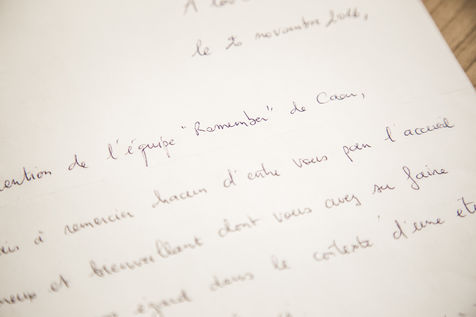 A
le 20 novembre 2016,
ention de l'équipe "Remember" de Caen,
is à remercier chacun d'entre vous pour l'accueil
reux et bienveillant dont vous avez su faire
égard dans le contexte d'une ét